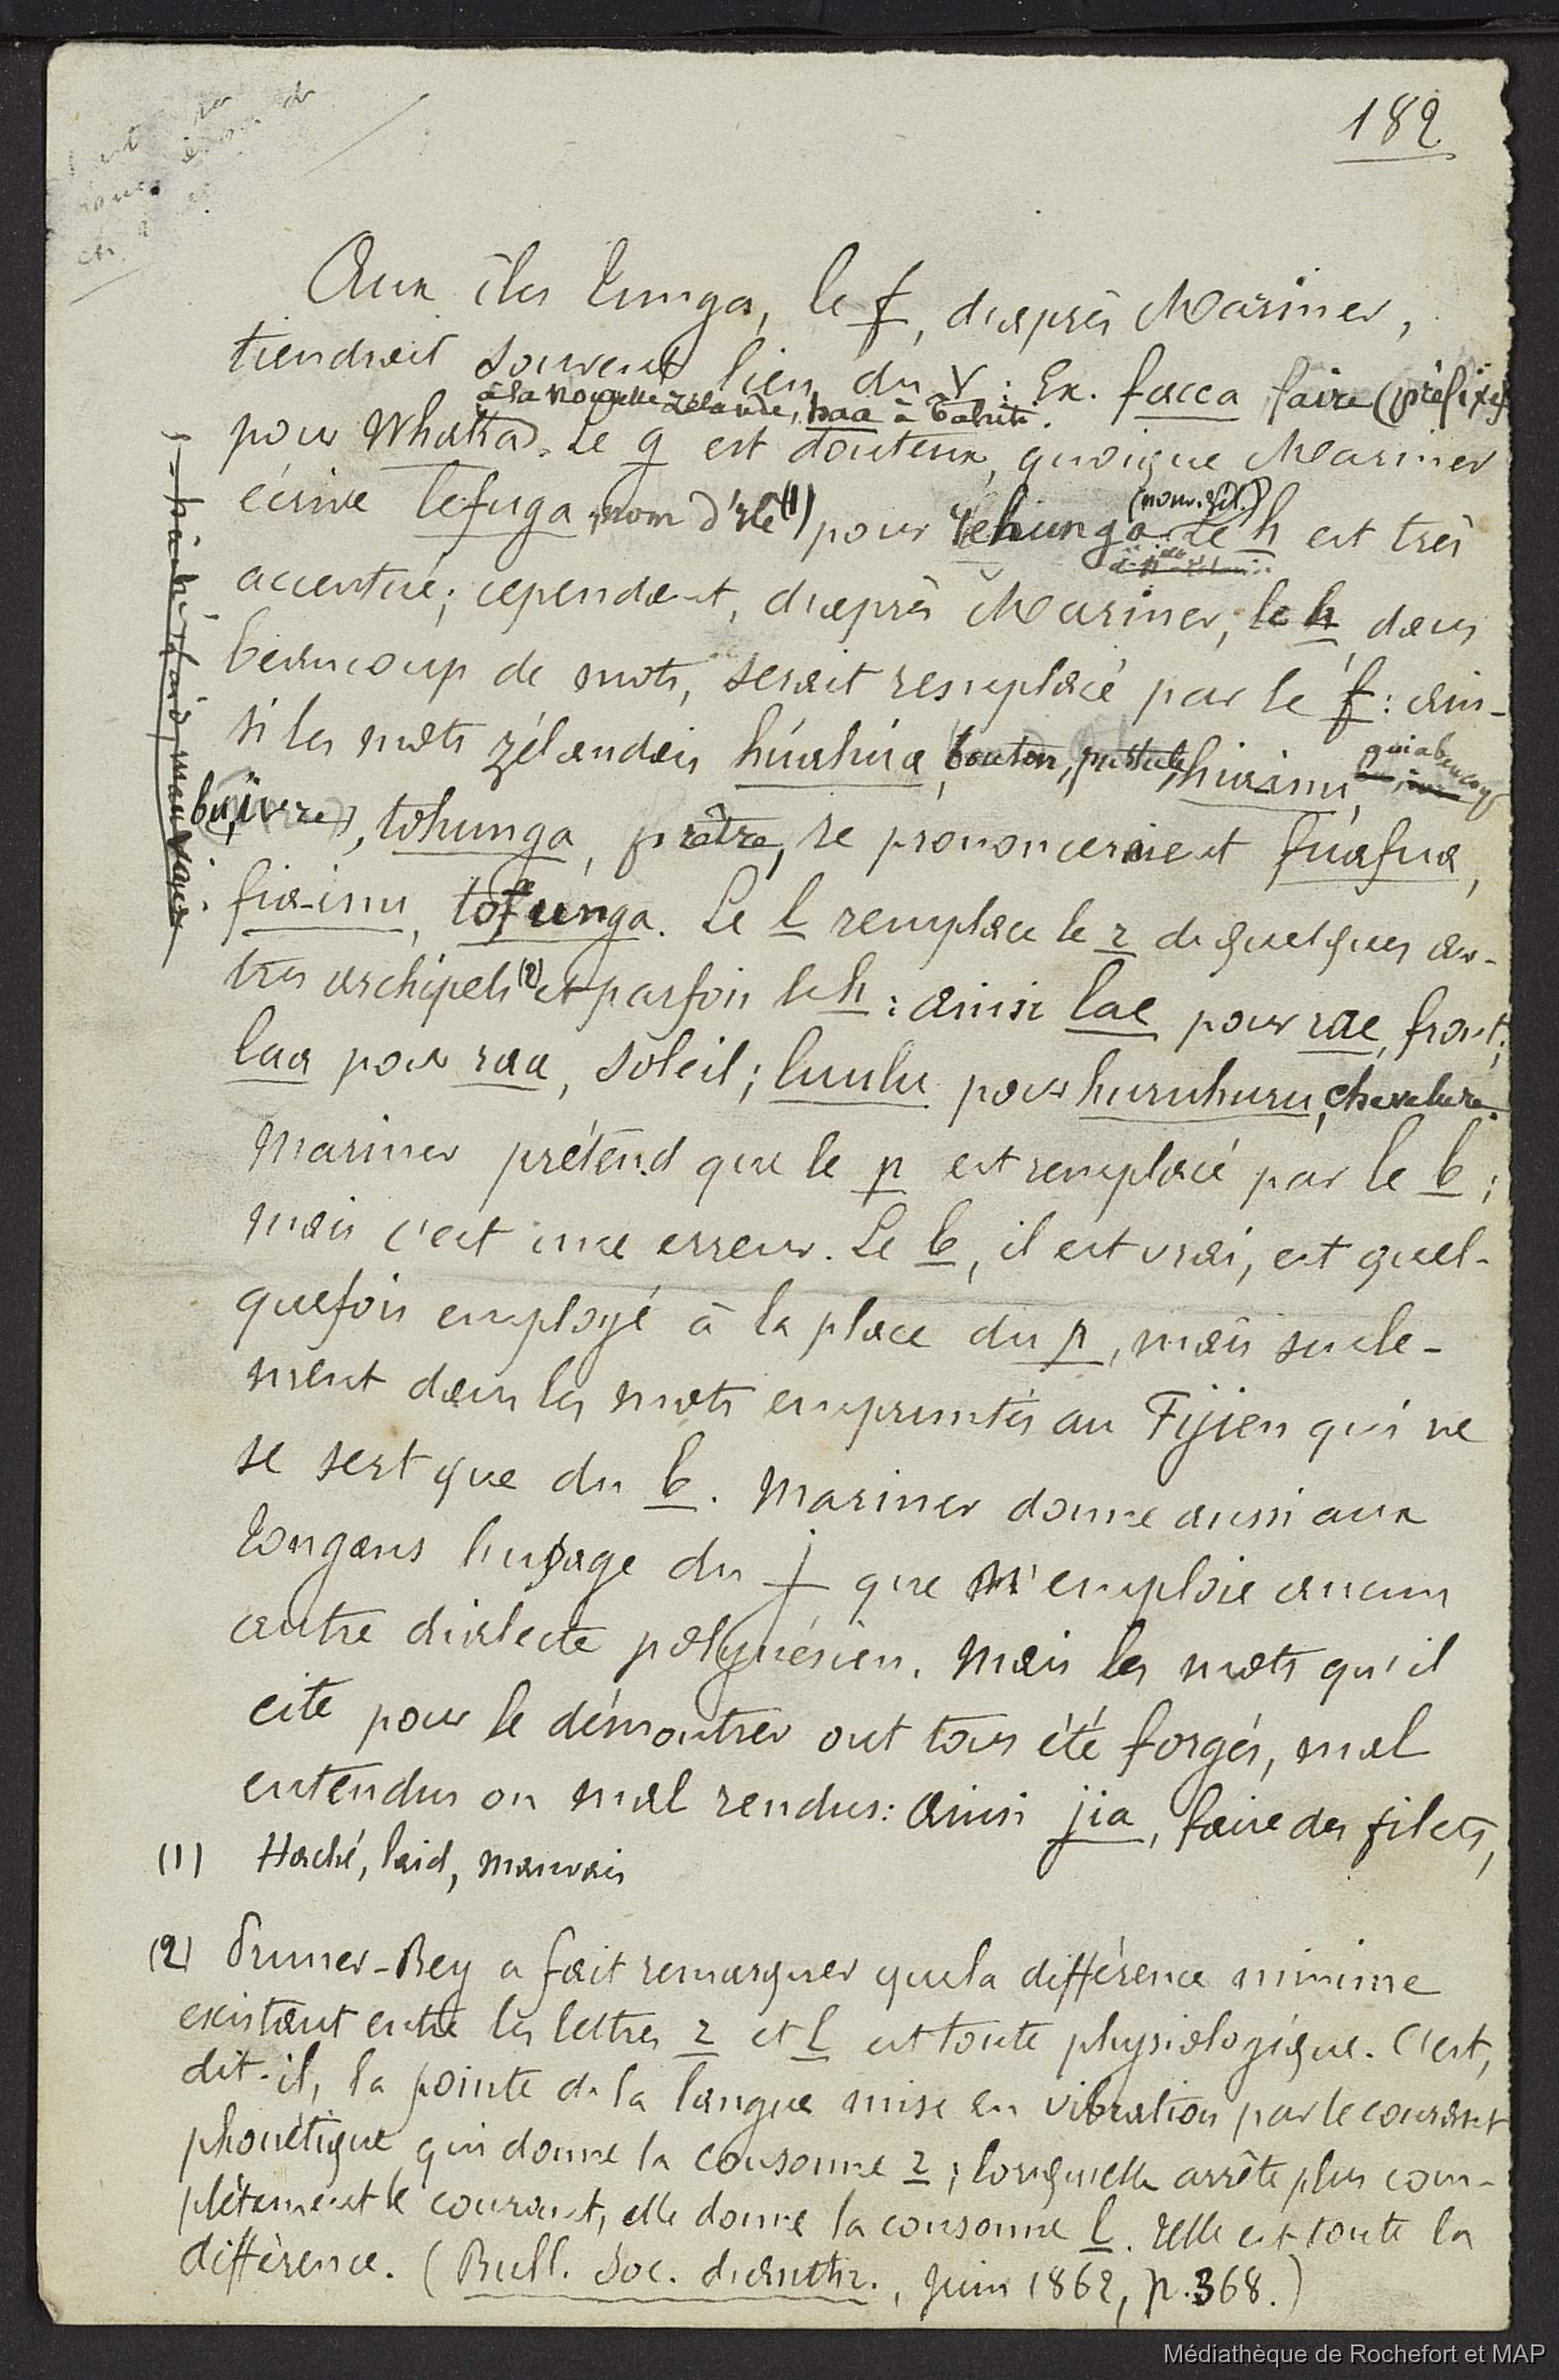 182
Aux îles Tunga, le f, d'après Mariner,
tiendrait souvent lieu du v : Ex. facca faire (préfixe)
à la Nouvelle Zélande, haa à Tahiti.
pour Whaka. Le g est douteux, quoique Mariner
écrive Lefuga, nom d'île (1) pour Lehunga (nouv. Zél.). Le h est très
accentué; cependant, d'après Mariner, le h, dans
beaucoup de mots, serait remplacé par le f : ain-
si les mots zélandais húahúa, bouton, pustule, hiainu, qui a beaucoup
bu, ivre, tohunga, prêtre, se prononceraient fúafua,
fia-inu, tofunga. Le l remplace le r de quelques au-
tres archipels (2) et parfois le h : ainsi lae pour rae, front;
laa pour raa, soleil; luulu pour huruhuru, chevelure.
Mariner prétend que le p est remplacé par le b;
mais c'est une erreur. Le b, il est vrai, est quel-
quefois employé à la place du p, mais seule-
ment dans les mots empruntés au Fijien qui ne
se sert que du b. Mariner donne aussi aux
Tongans l'usage du j que n'emploie aucun
autre dialecte polynésien. Mais les mots qu'il
cite pour le démontrer ont tous été forgés, mal
entendus ou mal rendus : ainsi jia, faire des filets,
(1) Haché, laid, mauvais
(2) Pruner-Bey a fait remarquer que la différence minime
existant entre les lettres r et l est toute physiologique. C'est,
dit-il, la pointe de la langue mise en vibration par le courant
phonétique qui donne la consonne r; lorsqu'elle arrête plus com-
plètement le courant, elle donne la consonne l. Telle est toute la
différence. (Bull. Soc. d'anthr., Juin 1862, p. 368.)
Médiathèque de Rochefort et MAP